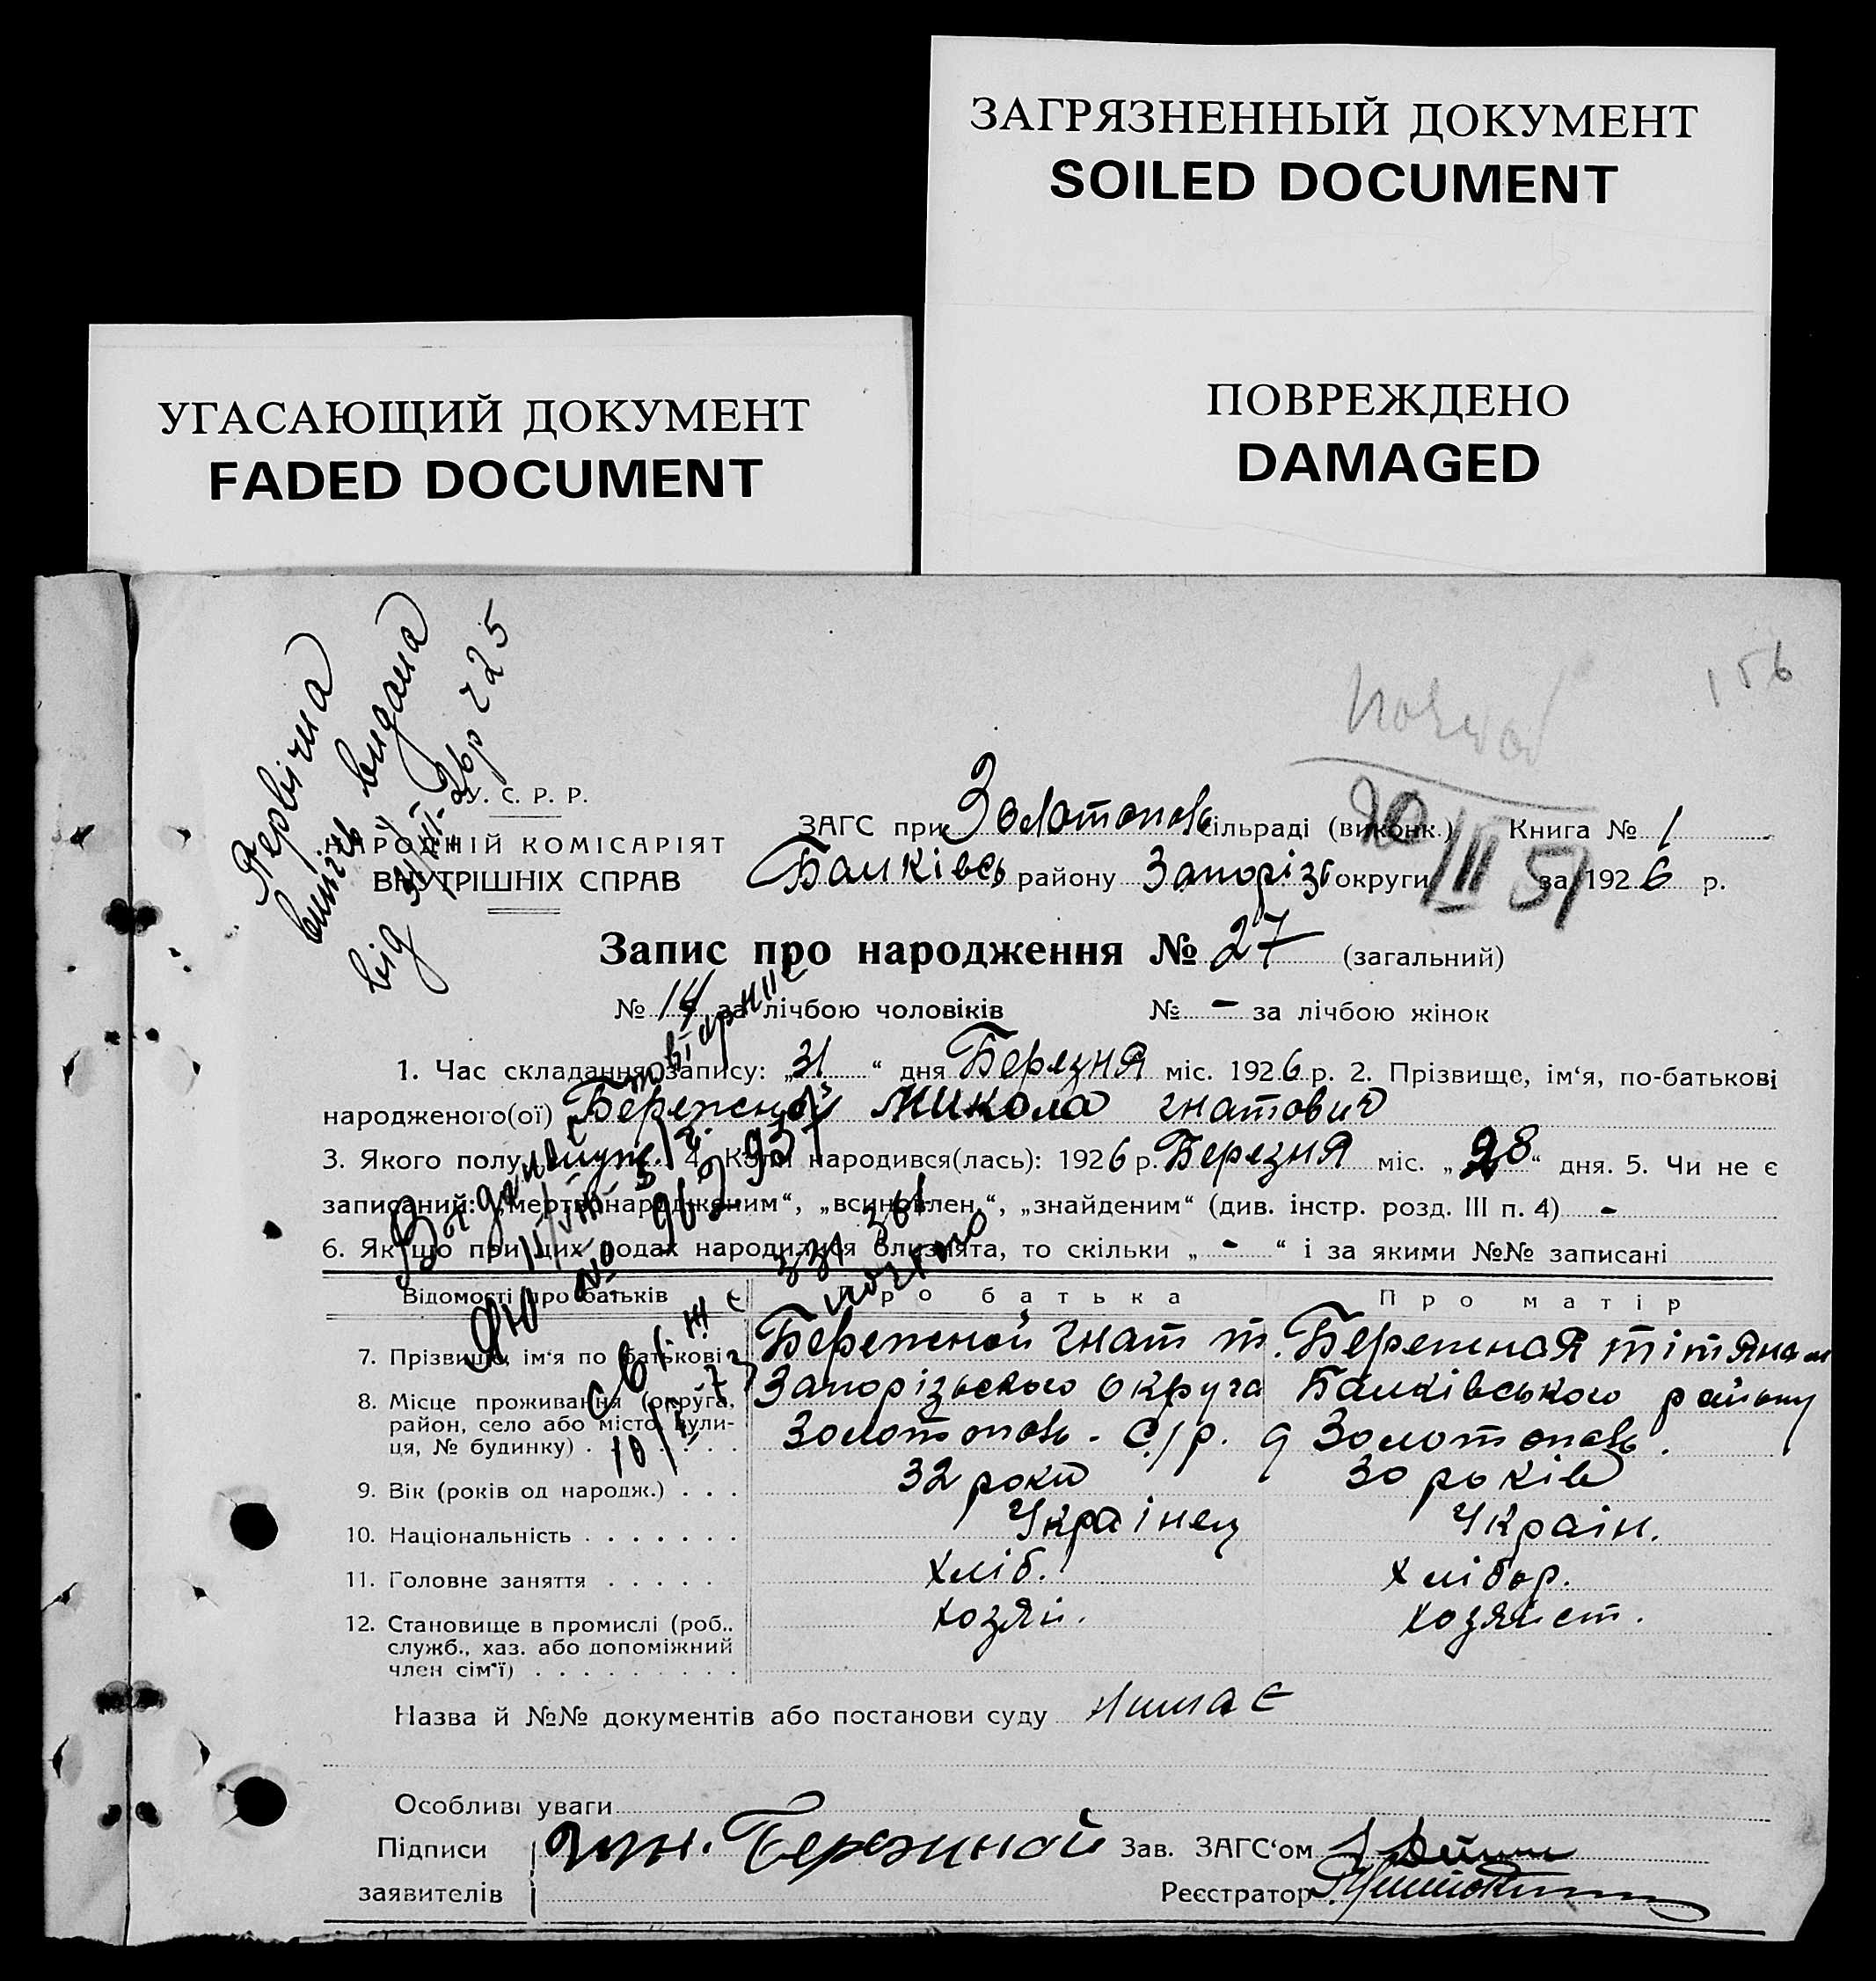 ЗАГРЯЗНЕННЫЙ ДОКУМЕНТ
SOILED DOCUMENT
УГАСАЮЩИЙ ДОКУМЕНТ
FADED DOCUMENT
ПОВРЕЖДЕНО
DAMAGED
156
Первічна
випісь видана
від 31/III-26р ч 25
У. С. Р. Р.
НАРОДНІЙ КОМІСАРІЯТ
ВНУТРІШНІХ СПРАВ
20/III 51
ЗАГС при Золотопольс сільраді (виконк.) Книга № 1
Балківсь району Запорізь округи за 1926 р.
Запис про народження № 27 (загальний)
№ 14 за лічбою чоловіків № - за лічбою жінок
1. Час складання запису: „31“ дня Березня міс. 1926 р. 2. Прізвище, ім‘я, по-батькові
народженого(ої) Бережной Микола Гнатович
3. Якого полу 4. Коли народився(лась): 1926 р. Березня міс. „28“ дня. 5. Чи не є
записаний: „мертвонародженим“, „всиновлен.“, „знайденим“ (див. інстр. розд. III п. 4) -
6. Якщо при цих родах народилися близнята, то скільки „ - “ і за якими №№ записані
Відомості про батьків Про батька Про матір
7. Прізвище, ім‘я по батькові Бережной Гнат т. Бережная Тітяна
8. Місце проживання (округа, район, село або місто, вулиця, № будинку) Запорізьского округа Балківського району
Золотополь. С/р. д Золотополь.
9. Вік (років од народж.) . . . 32 роки 30 років
10. Національність . . . . . . . Українец Україн.
11. Головне заняття . . . . . хліб. хлібор.
12. Становище в промислі (роб., служб., хаз. або допоміжний член сім‘ї) . . . . . . . . . хозяй. хозяйст.
Назва й №№ документів або постанови суду Нимає
Особливі уваги
Підписи Гнн. Бережной Зав. ЗАГС‘ом
заявителів Реєстратор